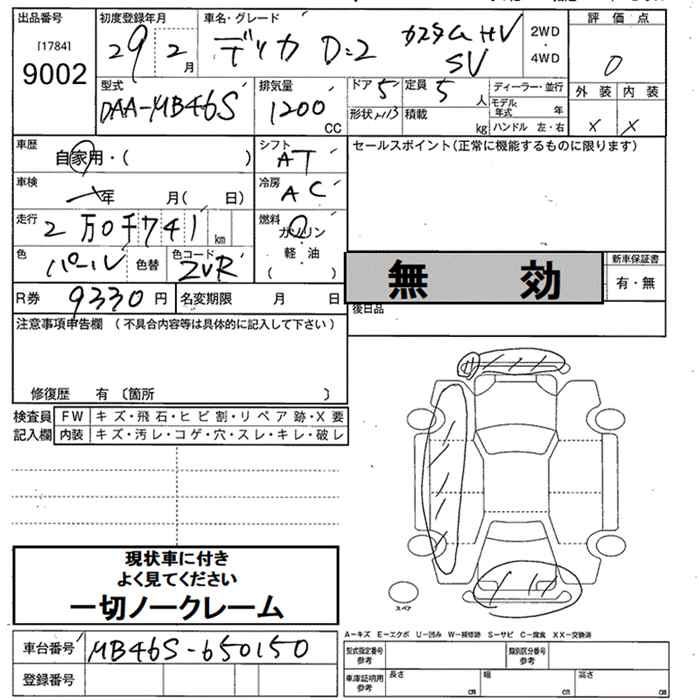 出品番号
[1784]
9002
初度登録年月
29 2月
車名・グレード
デリカ D:2 カスタム HV
SV
2WD
・
4WD
評価点
0
外装 内装
× ×
型式
DAA-MB46S
排気量
1200
CC
ドア 5
定員 5 人
ディーラー・並行
形状
積載 kg
モデル年式 年
ハンドル 左・右
車歴
自家用・( )
シフト
AT
セールスポイント(正常に機能するものに限ります)
車検
年 月( 日)
冷房
AC
走行
2万0千741 km
燃料
ガソリン
・
軽油
( )
色
パール
色替
色コード
ZVR
無効
新車保証書
有・無
R券 9330円
名変期限 月 日
後日品
注意事項申告欄 (不具合内容等は具体的に記入して下さい)
修復歴 有 〔箇所 〕
検査員
記入欄
FW キズ・飛石・ヒビ割・リペア跡・X要
内装 キズ・汚レ・コゲ・穴・スレ・キレ・破レ
現状車に付き
よく見てください
一切ノークレーム
スペア
A-キズ E-エクボ U-凹み W-補修跡 S-サビ C-腐食 XX-交換済
車台番号 MB46S-650150
登録番号
型式指定番号
参考
類別区分番号
参考
車庫証明用
参考
長さ cm
幅 cm
高さ cm